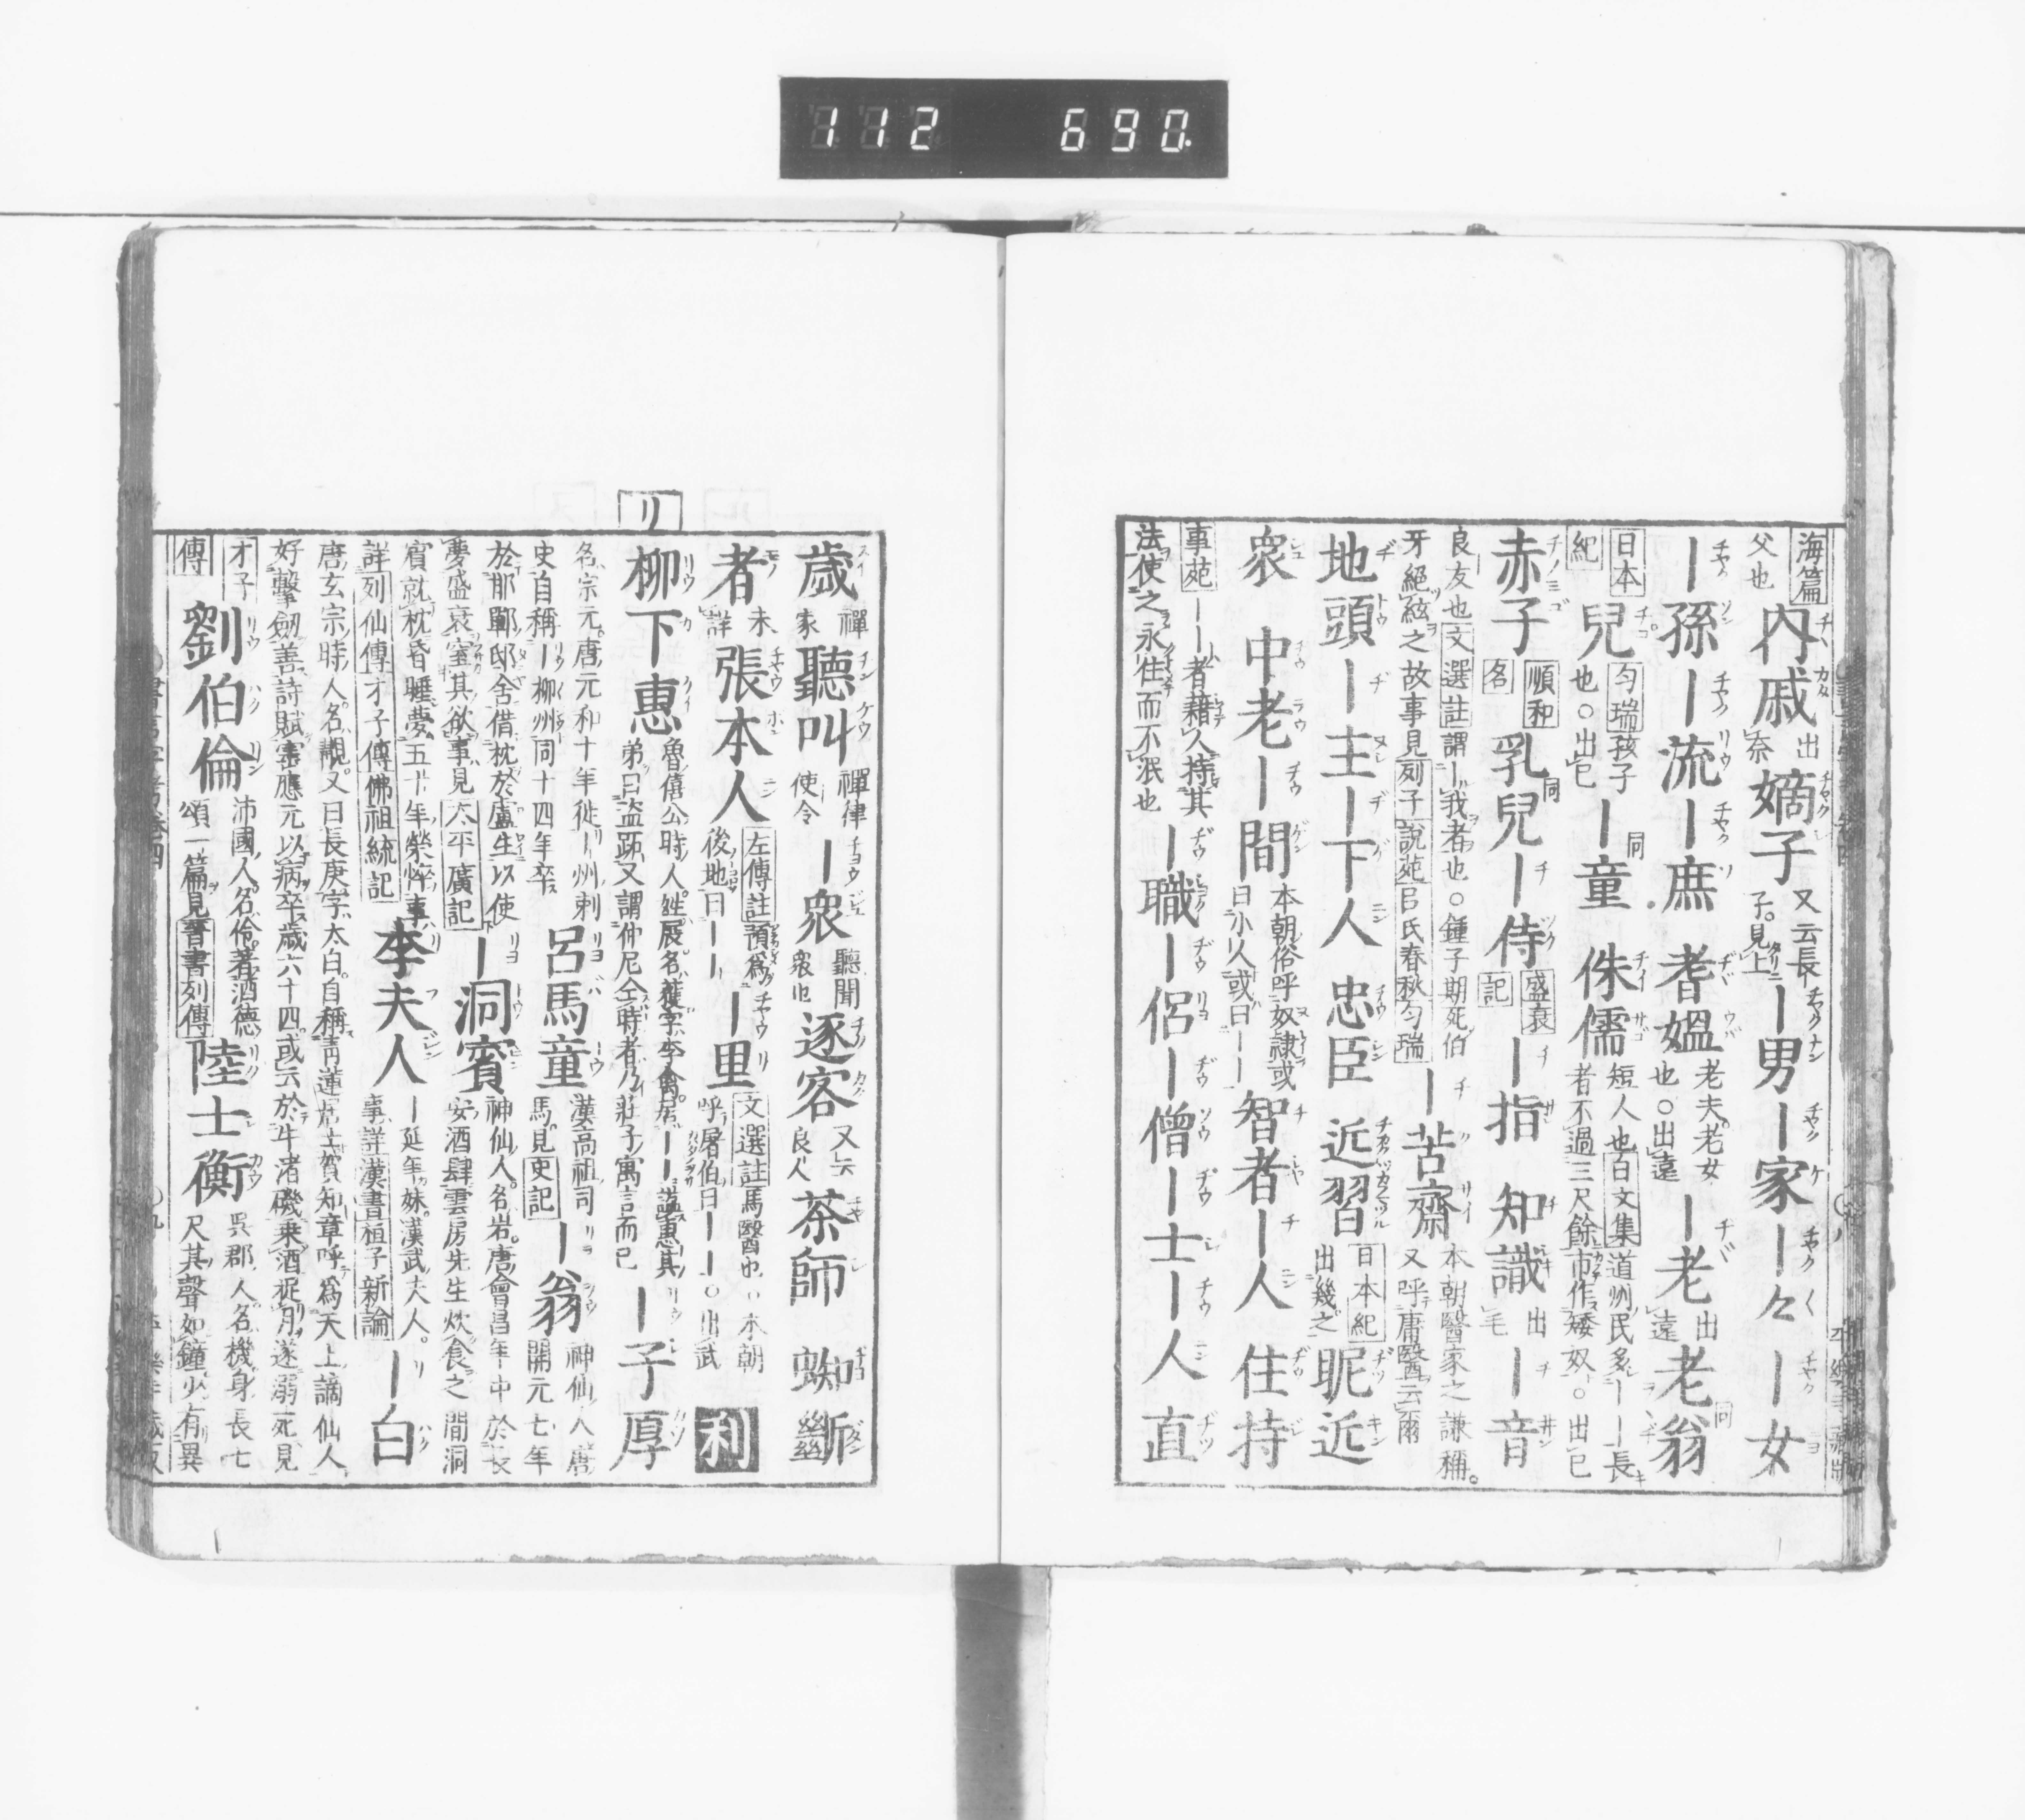 112 690.
海篇
父也
内戚 出奈
嫡子 又云長子。見上
｜男｜家｜々｜女
｜孫｜流｜庶 耆媼 老夫。老女也。○出遠
｜老 出遠 老翁 同
日本紀
兒 匀瑞 孩子也○出己 ｜童 同 侏儒 短人也 白文集 道州民多｜｜長者不過三尺餘市作矮奴。○出己
赤子 順和名 乳兒 同 ｜侍 盛衰記 ｜指 知識 出毛 ｜音
良友也 文選註 謂｜我者也。○鍾子期死伯
牙絕絃之故事見 列子 說苑 呂氏春秋 匀瑞
｜苦齋 本朝醫家之謙稱。又呼庸醫云爾
地頭｜主｜下人 忠臣 近習 日本紀 出幾之 昵近
衆 中老｜間 本朝俗呼奴隷或曰小人或曰｜｜ 智者｜人 住持
事苑 ｜｜者藉人持其
法使之永住而不泯也
｜職｜侶｜僧｜士｜人 直
歲 禪家 聽叫 禪律使令 ｜衆 聽聞衆也 逐客 又云良人 茶師 蜘蹰
者 未詳 張本人 左傳註 預爲後地曰｜｜ ｜里 文選註 馬醫也 本朝呼屠伯曰｜｜○出武 利
リ
柳下惠 魯僖公時人。姓展名獲字李禽居｜｜謚惠其弟曰盜跖又謂仲尼仝時者乃莊子寓言而已 ｜子厚
名宗元。唐元和十年從｜州刺
史自稱｜柳州同十四年卒
呂馬童 漢高祖司馬見 史記 ｜翁 神仙人唐開元七年
於邯鄲邸舍借枕於盧生以使
夢盛衰室其欲事見 太平廣記
｜洞賓 神仙人。名岩。唐會昌年中於長安酒肆雲房先生炊食之間洞
賓就枕昏睡夢五十年榮悴事
詳列仙傳 才子傳 佛祖統記
李夫人 ｜延年妹。漢武夫人。事詳 漢書 桓子新論 ｜白
唐玄宗時人。名觀。又曰長庚字太白。自稱青蓮居士賀知章呼爲天上謫仙人
好擊劒善詩賦寳應元以病卒歲六十四。或云於牛渚磯乗酒捉月遂溺死見
才子傳
劉伯倫 沛國人。名伶。著酒德頌一篇見 晉書列傳 陸士衡 呉郡人名機身長七尺其聲如鐘少有異